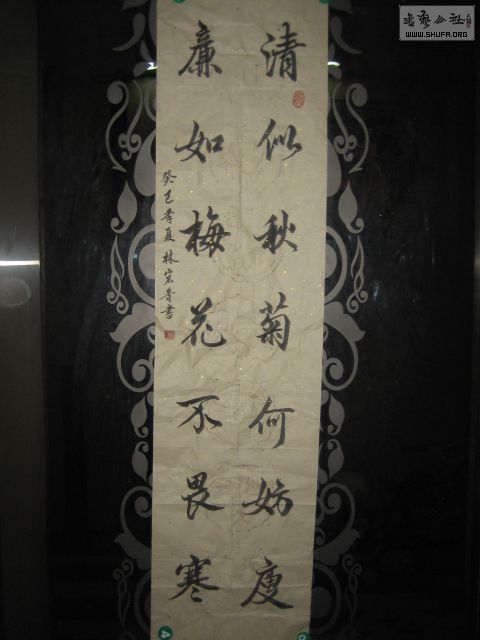 清似秋菊何妨瘦
廉如梅花不畏寒
癸巳季夏 林宏青书
书艺公社
WWW.SHUFA.ORG
4